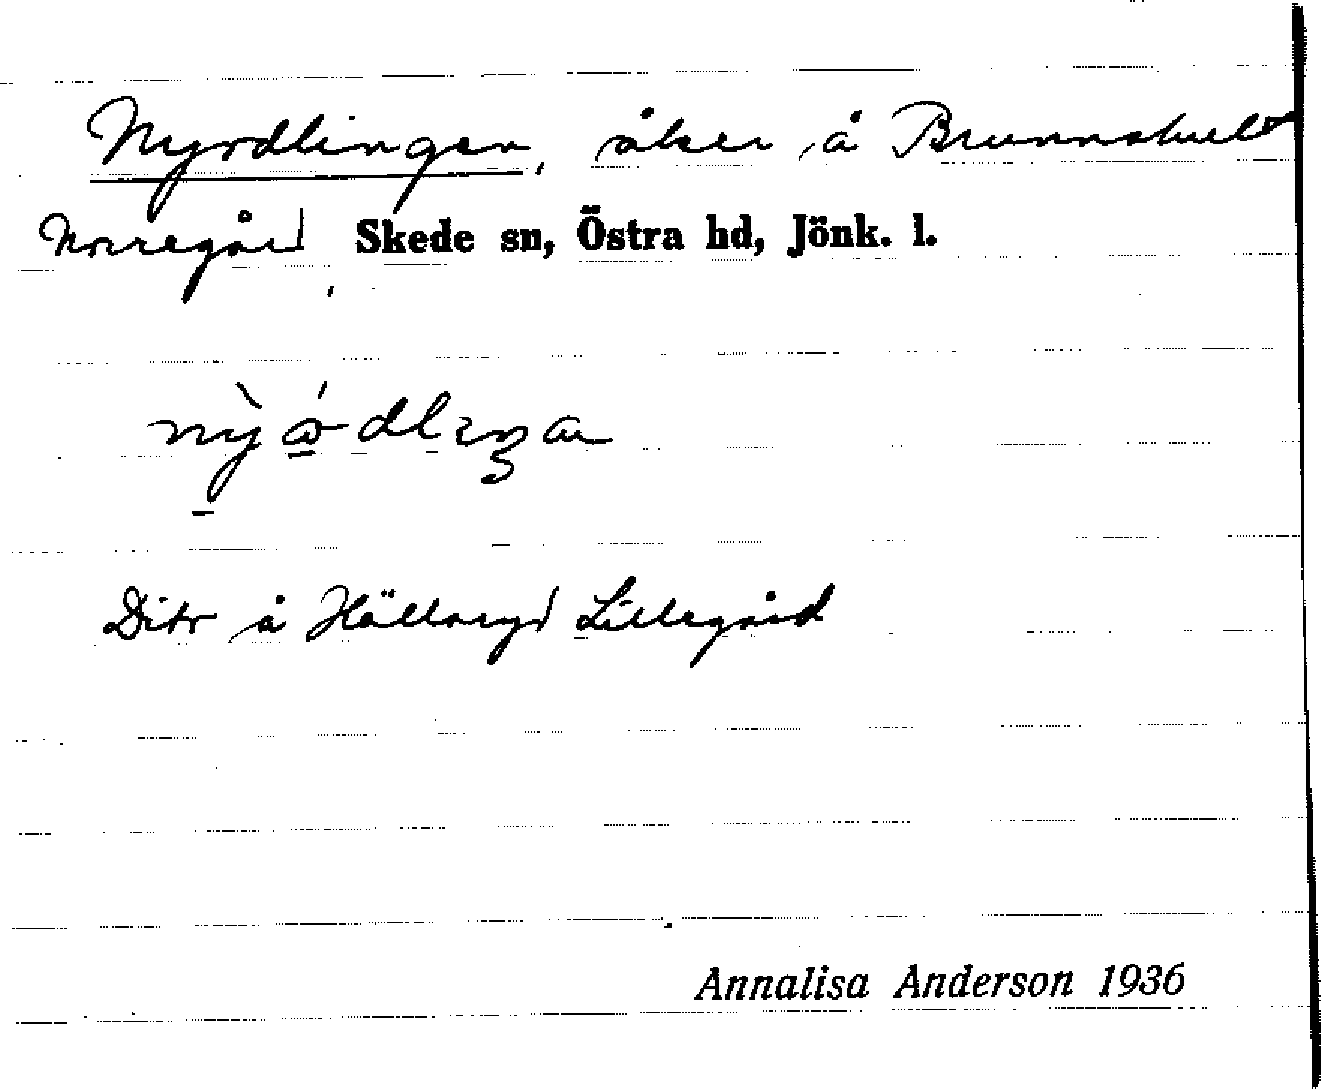 Nyrdlingen, åker å Brunnshult
Norregård, Skede sn, Östra hd, Jönk. l.
Dito å Hällaryd Lillegård
Annalisa Anderson 1936